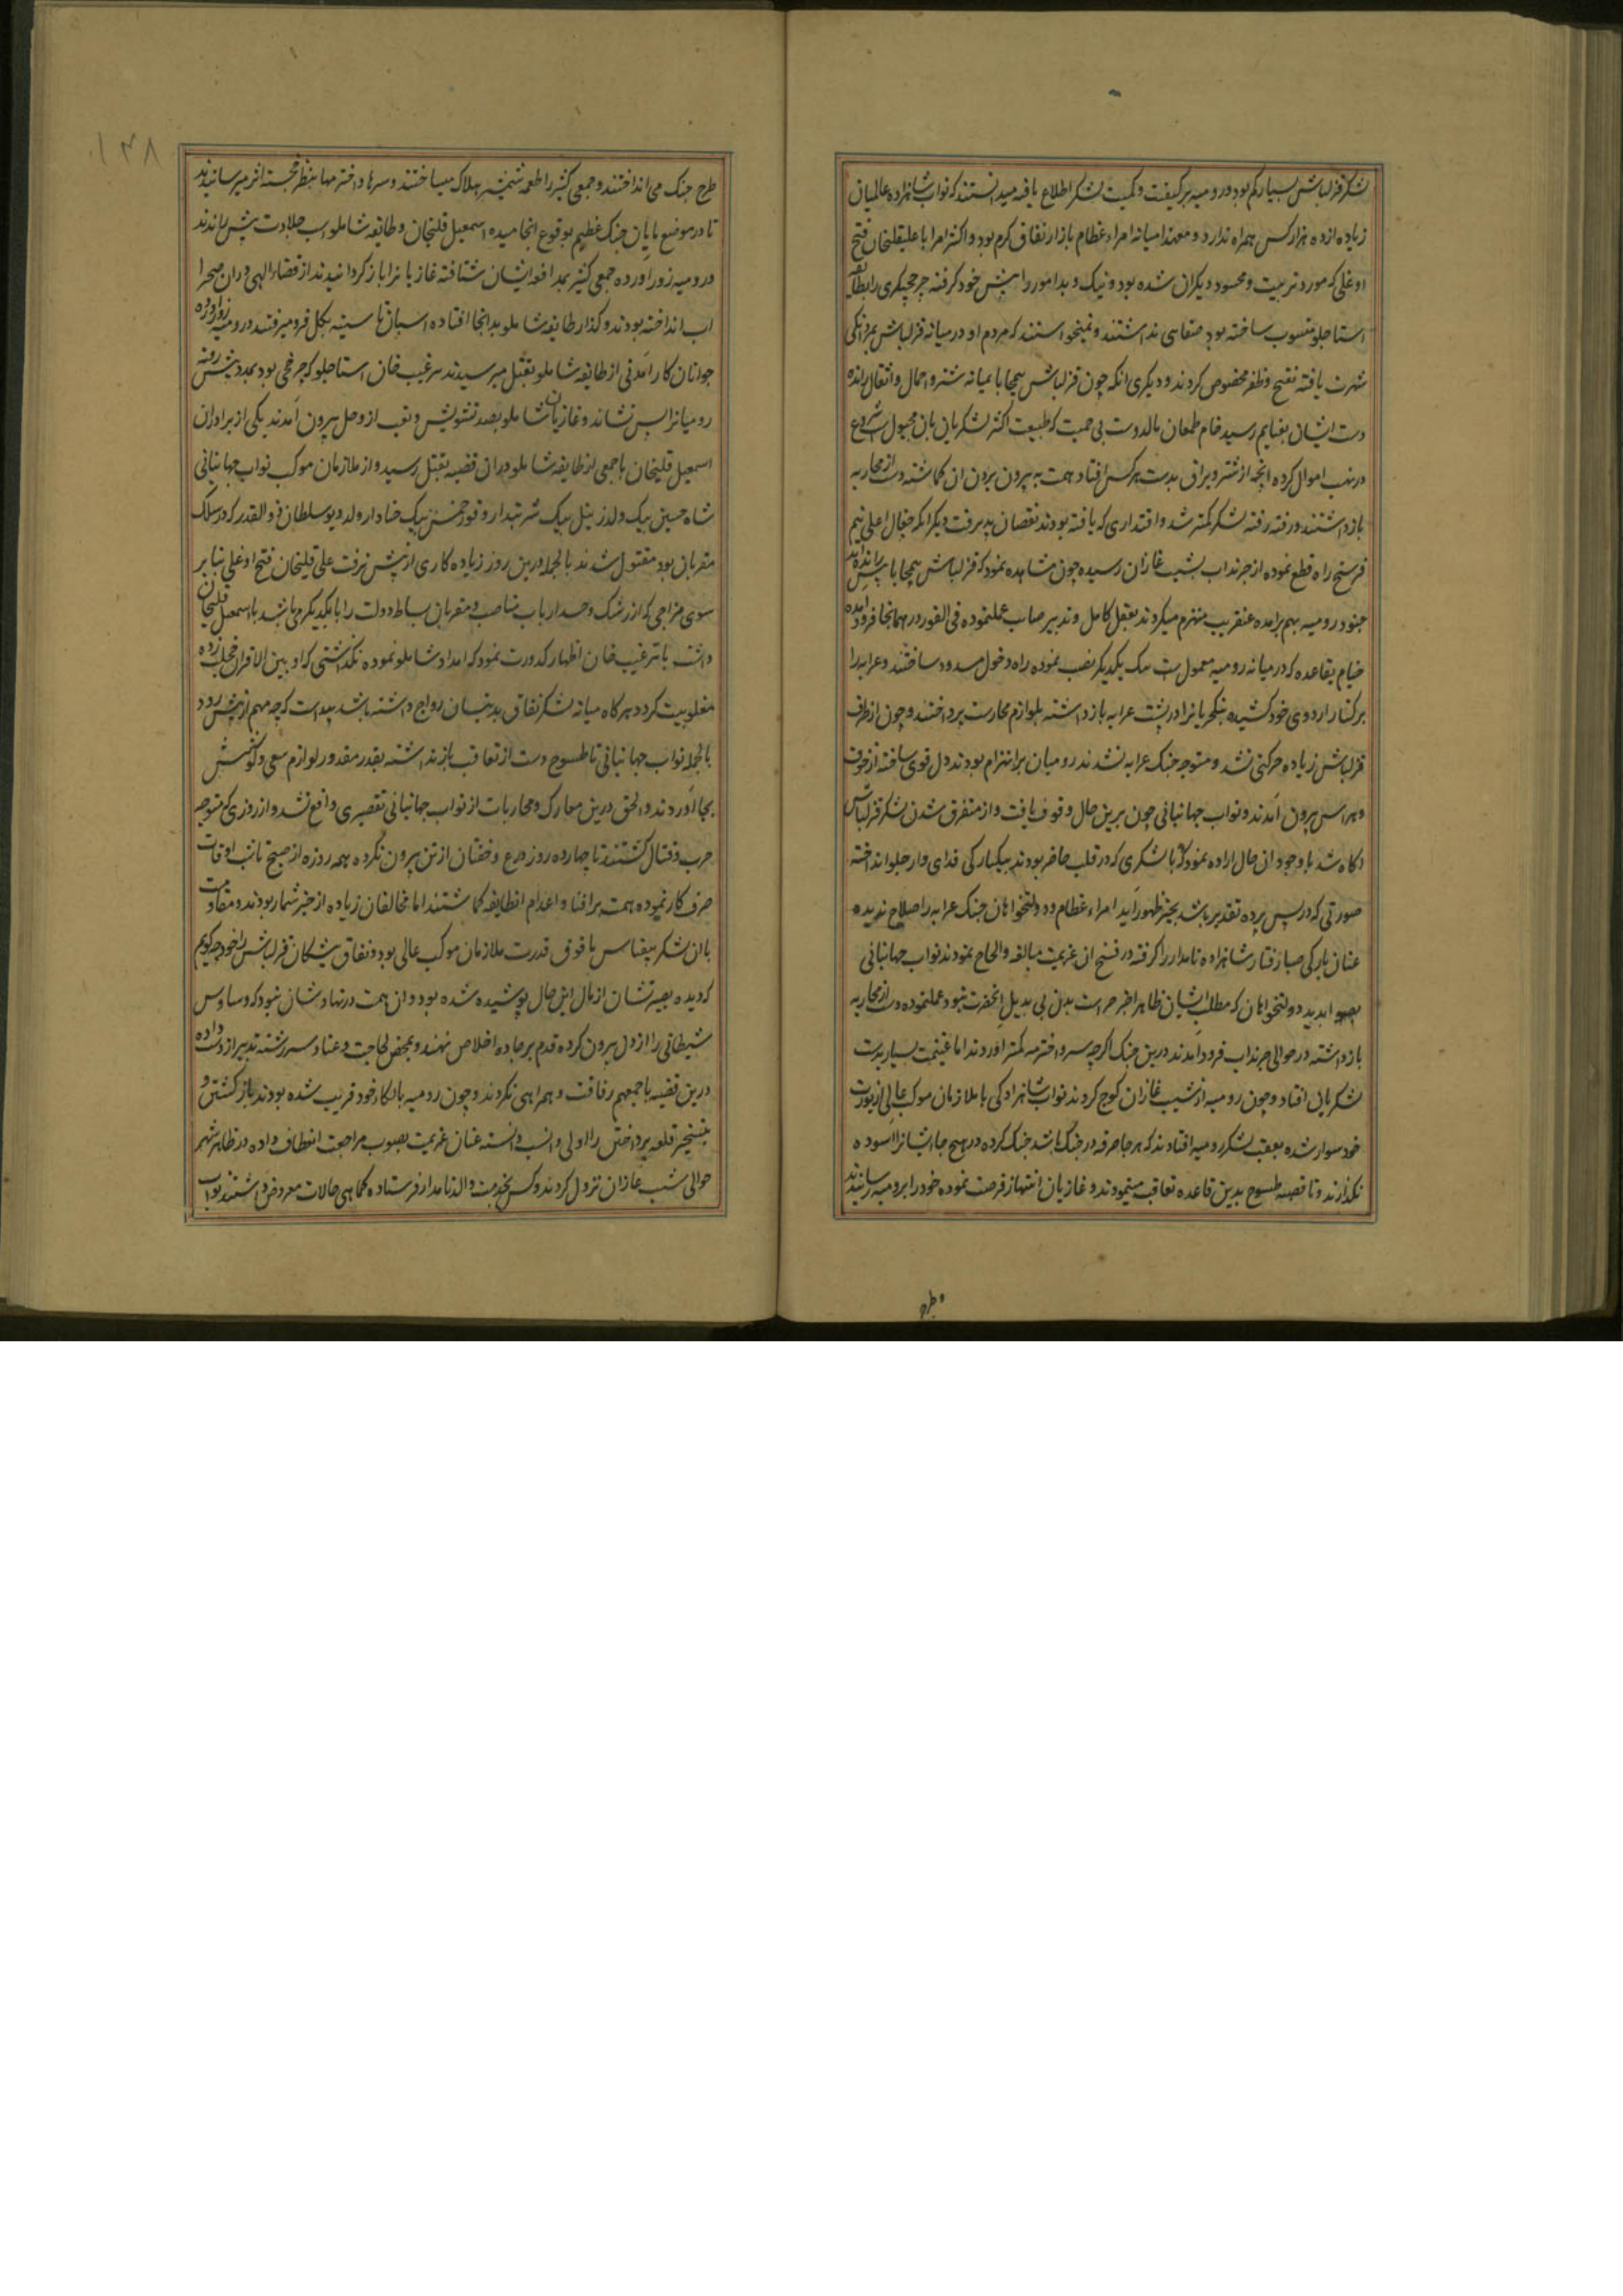 لشکر قزلباش بسیار کم بود و رومیه بر کیفیت و کمیت لشکر اطلاع یافته میدانستند که نواب شاهزاده عالمیان
زیاده از ده هزار کس همراه ندارد و معهذا میانه امراء عظام بازار نفاق کرم بود و اکثر امرا با علیقلیخان فتح
اوغلی که مورد تربیت و محسود دیکران شده بود و نیک و بد امور را پیش خود کرفته چرخچیکری را بطایفه
استاجلو منسوب ساخته بود صفایی نداشتند و نمیخواستند که مردم او در میانه قزلباش بمردانکی
شهرت یافته بفتح و ظفر مخصوص کردند و دیکری انکه چون قزلباش بیمحابا بمیانه شتر و احمال و اثقال رانده
دست ایشان بغنایم رسید خام طمعان مالدوست بی حمیت که طبیعت اکثر لشکریان بان مجبول است شروع
در نهب اموال کرده انچه از شتر و یراق بدست هرکس افتاد همت به بیرون بردن ان کماشته دست از محاربه
بازداشتند و رفته رفته لشکر کمتر شد و اقتداری که یافته بودند نقصان پذیرفت دیکر انکه جغال اغلی نیم
فرسخ راه قطع نموده از چرنداب بشنب غازان رسیده چون مشاهده نمود که قزلباش بیمحابا پیش رانده اند
جنود رومیه بهم برامده عنقریب منهزم میکردند بعقل کامل و تدبیر صایب عملنموده فی الفور در همانجا فرود امده
خیام بقاعده که در میانه رومیه معمول است یک بیکدیکر نصب نموده راه دخول مسدود ساختند و عرابه را
بر کنار اردوی خود کشیده ینکچریانرا در پشت عرابه بازداشته بلوازم محارست پرداختند و چون از طرف
قزلباش زیاده حرکتی نشد و متوجه جنک عرابه نشدند رومیان بر انهزام بودند دل قوی ساخته از خوف
و هراس بیرون آمدند و نواب جهانبانی چون برین حال وقوف یافت و از متفرق شدن لشکر قزلباش
اکاه شد باوجود ان حال اراده نمود که با لشکری که در قلب حاضر بودند بیکبارکی فدای وار جلو انداخته
صورتی که در پس پرده تقدیر باشد بحیز ظهور آید امراء عظام و دولتخواهان جنک عرابه را صلاح ندیده
عنان بارکی صبا رفتار شاهزاده نامدار را کرفته در فسخ ان عزیمت مبالغه و الحاح نمودند نواب جهانبانی
بصوابدید دولتخواهان که مطلب ایشان ظاهرا جز حراست بدن بی بدیل آنحضرت نبود عملنموده دست از محاربه
بازداشته در حوالی چرنداب فرود آمدند درین جنک اکرچه سر و اخترمه کمتر اوردند اما غنیمت بسیار بدست
لشکریان افتاد و چون رومیه از شنب غازان کوچ کردند نواب شاهزادکی با ملازمان موکب عالی از یورت
خود سوار شده بعقب لشکر رومیه افتادند که هرجا صرفه در جنک باشد جنک کرده در هیچ جا ایشانرا اسوده
نکذارند و تا قصبه طسوج بدین قاعده تعاقب مینمودند و غازیان انتهاز فرصت نموده خود را برومیه رسانیدند
و طرح
۱۴۸
طرح جنک می انداختند و جمعی کثیر را طعمه شمشیر هلاک میساختند و سرها و اخترمها بنظر خجسته اثر میرسانیدند
تا در موضع پایان جنک عظیم بوقوع انجامیده اسمعیل قلیخان و طایفه شاملو اسب جلادت پیش راندند
و رومیه زور اورده جمعی کثیر بمدافعه ایشان شتافته غازیانرا بازکردانیدند از قضاء الهی در ان صحرا
اب انداخته بودند و کذار طایفه شاملو بدانجا افتاده اسپان تا سینه بکل فرو میرفتند و رومیه زور اورده
جوانان کارآمدنی از طایفه شاملو بقتل میرسیدند ترغیب خان استاجلو که چرخچی بود بمدد پیش رفته
رومیانرا پس نشاند و غازیان شاملو بصد تشویش و تعب از وحل بیرون آمدند یکی از برادران
اسمعیل قلیخان با جمعی از طایفه شاملو در ان قضیه بقتل رسید و از ملازمان موکب نواب جهانبانی
شاه حسین بیک ولد زینل بیک شربتدار و قوزخمس بیک خنادار ولد دیو سلطان ذوالقدر که در سلک
مقربان بود مقتول شدند بالجمله درین روز زیاده کاری از پیش نرفت علی قلیخان فتح اوغلی بنابر
سوی مزاجی که از رشک و حسد ارباب مناصب و مقربان بساط دولت را با یکدیکر می باشد با اسمعیل قلیخان
داشت با ترغیب خان اظهار کدورت نمود که امداد شاملو نموده نکذاشتی که او بین الاقران خجلت زده
مغلوبیت کردد هرکاه میانه لشکر نفاق بدینسان رواج داشته باشد پیداست که چه مهم از پیش رود
بالجمله نواب جهانبانی تا طسوج دست از تعاقب باز نداشته بقدر مقدور لوازم سعی و کوشش
بجا آوردند و الحق درین معارک و محاربات از نواب جهانبانی تقصیری واقع نشد و از روزی که متوجه
حرب و قتال کشتند تا چهارده روز درع و خفتان از تن بیرون نکرده همه روزه از صبح تا شب اوقات
صرف کار نموده همت بر افنا و اعدام انطایفه کماشتند اما مخالفان زیاده از حیز شمار بودند و مقاومت
با ان لشکر بیقیاس مافوق قدرت ملازمان موکب عالی بود و نفاق پیشکان قزلباش را خود چه کویم
که دیده بصیرتشان از مال این حال پوشیده شده بود و ان همت در نهادشان نبود که وساوس
شیطانی را از دل بیرون کرده قدم بر جاده اخلاص نهند و بمحض لجاجت و عناد سررشته تدبیر از دست داده
درین قضیه با جمیعهم رفاقت و همراهی نکردند و چون رومیه بالکاء خود قریب شده بودند بازکشتن و
بتسخیر قلعه پرداختن را اولی و انسب دانسته عنان عزیمت بصوب مراجعت انعطاف داده در ظاهر شهر
حوالی شنب غازان نزول کردند و کس بخدمت والد نامدار فرستاده کماهی حالات معروض داشتند نواب